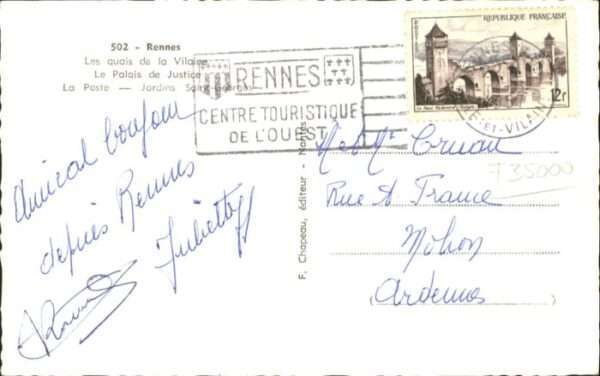 502 - Rennes
Les quais de la Vilaine
Le Palais de Justice
La Poste — Jardins Saint-Georges
RENNES
CENTRE TOURISTIQUE
DE L'OUEST
REPUBLIQUE FRANÇAISE
12F
ET-VILAINE
Amical bonjour
depuis Rennes
Juliette
F. Chapeau, éditeur - Nantes
F35000
Rue A. France
Mohon
(Ardennes)